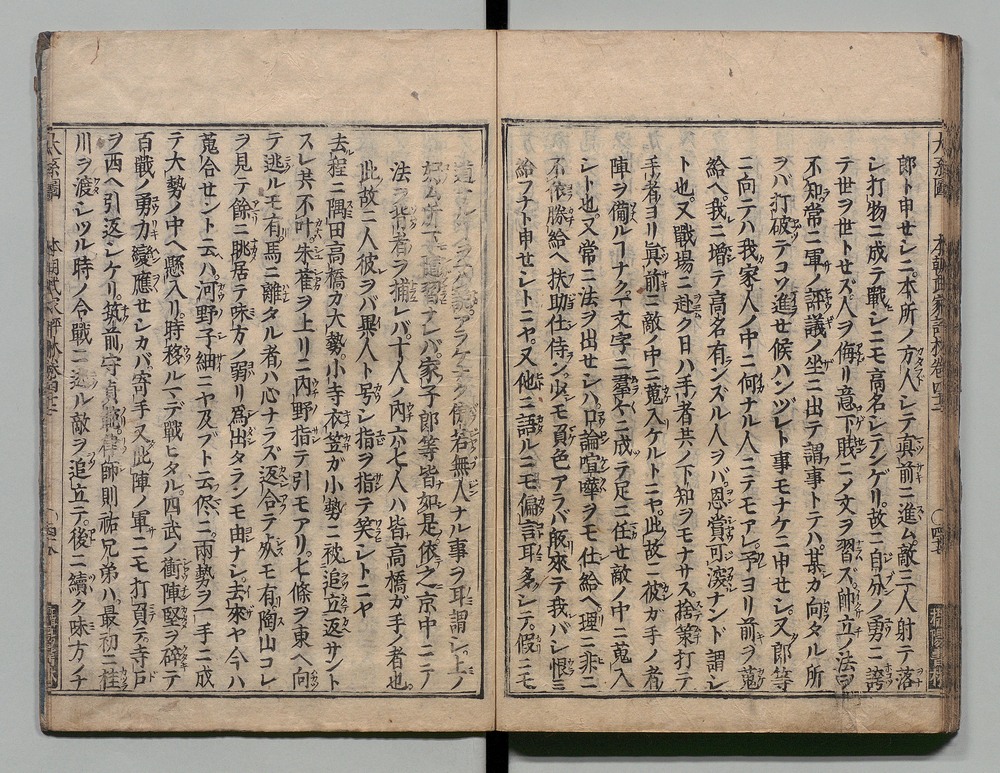 郎ト申セシニ本所ノ方人シテ真前ニ進ム敵三人射テ落
シ打物ニ成テ戦シニモ高名シテンゲリ故ニ自分ノ勇ニ誇
テ世ヲ世トセズ人ヲ侮リ意下賤ニノ文ヲ習ズ帥立ノ法ヲ
不知常ニ軍ノ評議ノ坐ニ出テ謂事トテハ某カ向タル所
ヲバ打破テコソ進セ候ハンツレト事モナケニ申セシ又郎等
ニ向テハ我家人ノ中ニ何ナル人ニテモアレ予ヨリ前ヲ蒐
給ヘ我ニ増テ高名有ンズル人ヲバ恩賞可ナンド謂レ
ト也又戦場ニ赴ク日ハ手者共ノ下知ヲモナサス捨策打テ
手者ヨリ眞前ニ敵ノ中ニ蒐入ケルトニヤ此故ニ彼ガ手ノ者
陣ヲ備ルナク文字ニ成テ足ニ任セ敵ノ中ニ蒐入
シト也又常ニ法ヲ出セシハ口論喧嘩ヲモ仕給ヘ理ニ非ニ
不依勝給ヘ扶助仕侍ン少モ負色アラバ販來テ我バシ恨
給フナト申セシトニヤ又他ニ語ルニモ偏言耳多シテ假ニモ
道ナル傍若無人ナル事ヲ耳謂シ上ノ
ナレバ家子郎等皆如是依之京中ニテ
法ヲ背者ヲ捕レバ十人ノ内六七人ハ皆高橋ガ手ノ者也
此故ニ人彼ヲバ異人ト号シ指ヲ指テ笑レトニヤ
去程ニ隅田高橋カ大勢小寺衣笠ガ小勢ニ被追立返サント
スレ共不叶朱雀ヲ上リニ内野指テ引モアリ七條ヲ東ヘ向
テ逃ルモ有馬ニ離タル者ハ心ナラズ返合テ死モ有陶山コレ
ヲ見テ餘ニ眺居テ味方ノ弱リ爲出タランモ由ナシ去來ヤ今ハ
蒐合セント云ハ河野子細ニヤ及ブト云侭ニ両勢ヲ一手ニ成
テ大勢ノ中ヘ懸入リ時移ルマデ戦ヒタル四武ノ衝陣堅ヲ砕テ
百戰ノ勇力變應セシカバ寄手又此陣ノ軍ニモ打負テ寺戸
ヲ西ヘ引返シケリ筑前守貞範律師則祐兄弟ハ最初ニ桂
川ヲ渡シツル時ノ合戰ニ逃ル敵ヲ追立テ後ニ續ク味方ノナ